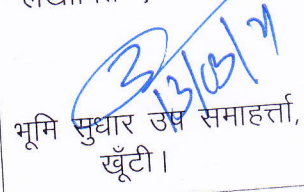 13/03/21
भूमि सुधार उप समाहर्त्ता,
खूँटी।